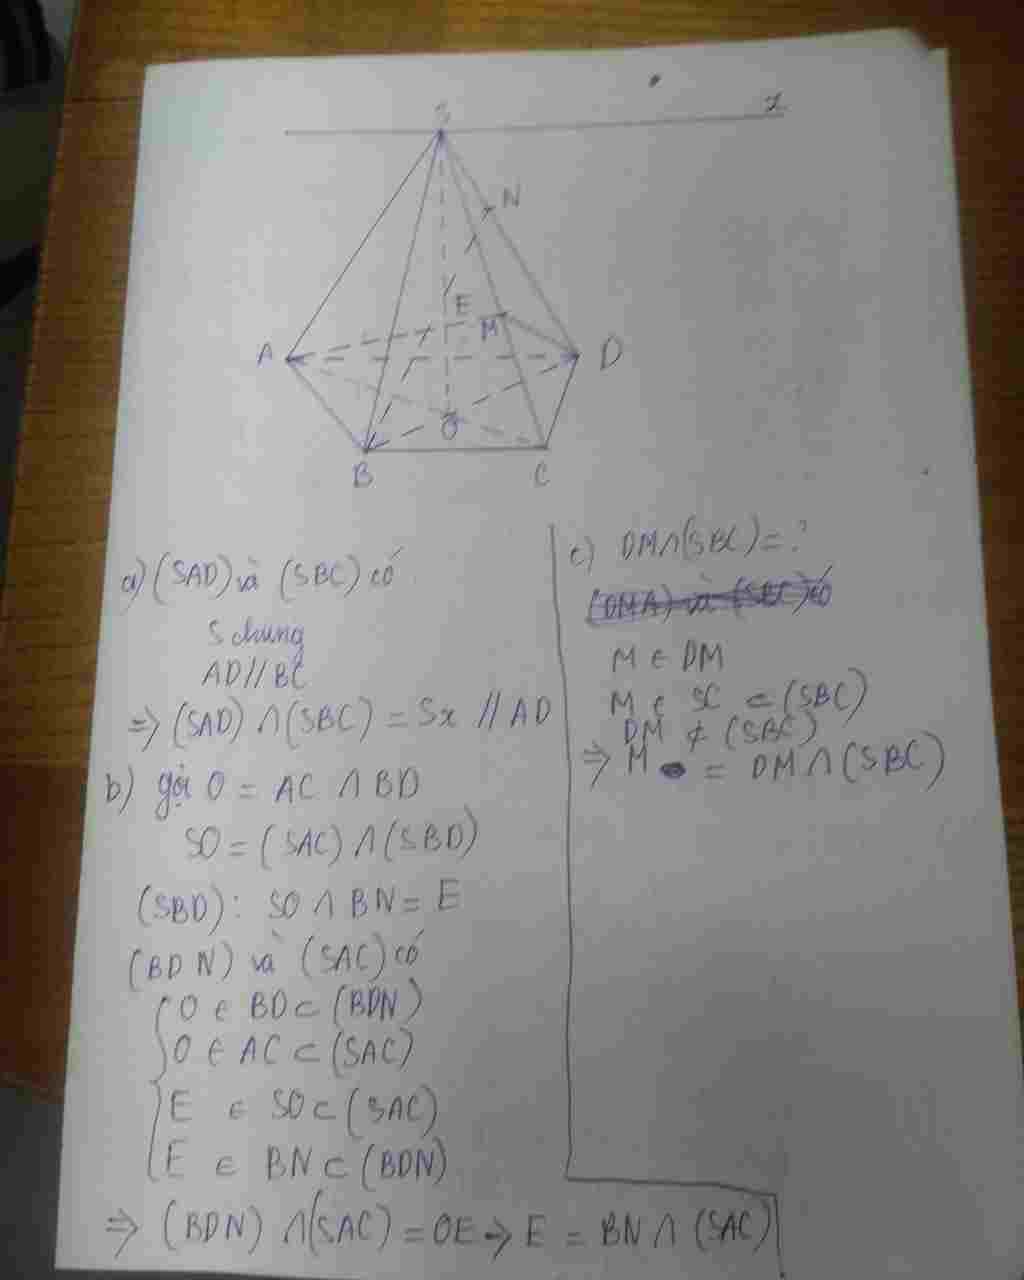 S
x
N
E
M
A
D
O
B
C
a) (SAD) và (SBC) có
S chung
AD // BC
=> (SAD) ∩ (SBC) = Sx // AD
b) gọi O = AC ∩ BD
SO = (SAC) ∩ (SBD)
(SBD): SO ∩ BN = E
(BDN) và (SAC) có
O ∈ BD ⊂ (BDN)
O ∈ AC ⊂ (SAC)
E ∈ SO ⊂ (SAC)
E ∈ BN ⊂ (BDN)
=> (BDN) ∩ (SAC) = OE => E = BN ∩ (SAC)
c) DM ∩ (SBC) = ?
(DMA) và (SBC) có
M ∈ DM
M ∈ SC ⊂ (SBC)
DM ⊄ (SBC)
=> M = DM ∩ (SBC)